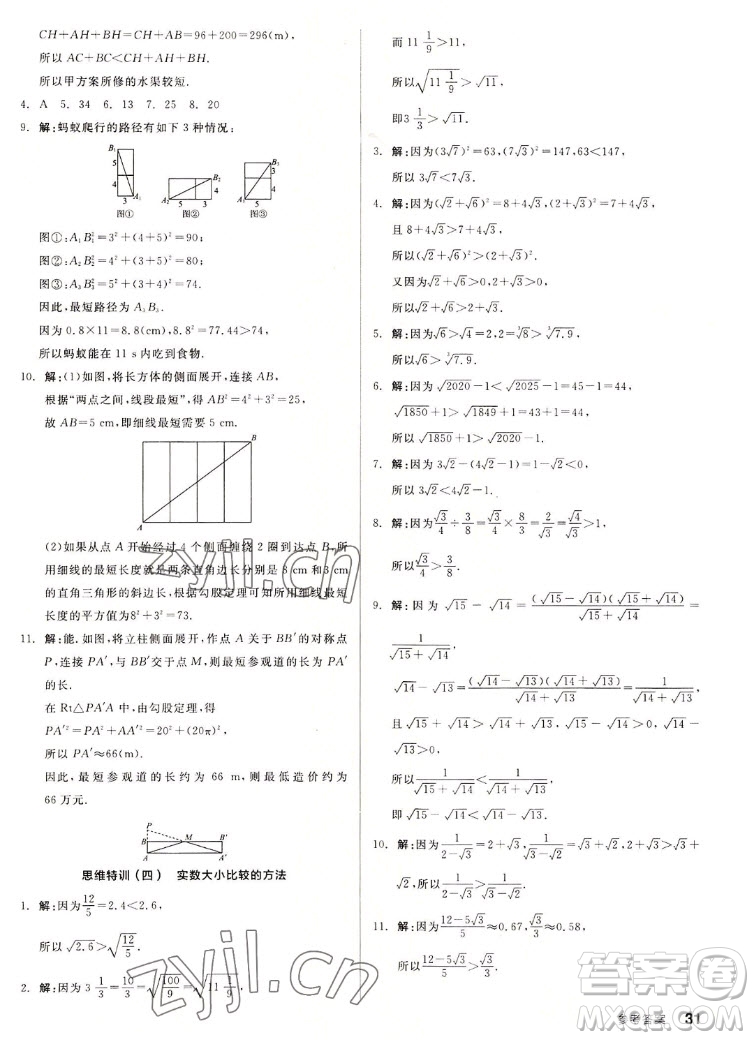 CH+AH+BH=CA+BH=96+200=296(m),
所以 AC+BC<CH+AH+BH.
所以甲方案所修的水渠较短.
4. A 5. 34 6. 13 7. 25 8. 20
9. 解:蚂蚁爬行的路径有如下 3 种情况:
B₁ 5 4 3 A₁ 图①
B₂ 4 A₂ 5 3 图②
B₃ 3 4 A₃ 5 图③
图①:A₁B₁²=3²+(4+5)²=90;
图②:A₂B₂²=4²+(5+3)²=80;
图③:A₃B₃²=5²+(3+4)²=74.
因此,最短路径为 A₃B₃.
因为 0.8×11=8.8(cm),8.8²=77.44>74,
所以蚂蚁能在 11 s 内吃到食物.
10. 解:(1)如图,将长方体的侧面展开,连接 AB,
根据“两点之间,线段最短”,得 AB²=4²+3²=25,
故 AB=5 cm,即细线最短需要 5 cm.
B
A
(2)如果从点 A 开始经过 4 个侧面缠绕 2 圈到达点 B,所
用细线的最短长度就是两条直角边长分别是 8 cm和3 cm
的直角三角形的斜边长,根据勾股定理可知所用细线最短
长度的平方值为8²+3²=73.
11. 解:能.如图,将立柱侧面展开,作点 A 关于 BB′的对称点
P,连接 PA′,与 BB′交于点 M,则最短参观道的长为 PA′
的长.
在 Rt△PA′A 中,由勾股定理,得
PA′²=PA²+AA′²=20²+(20π)²,
所以 PA′≈66(m).
因此,最短参观道的长约为 66 m,则最低造价约为
66 万元.
P
B M B′
A A′
思维特训(四) 实数大小比较的方法
1. 解:因为12/5=2.4<2.6,
所以 √2.6>√(12/5).
2. 解:因为 3 1/3=10/3=√(100/9)=√(11 1/9),
而 11 1/9>11,
所以√(11 1/9)>√11,
即3 1/3>√11.
3. 解:因为(3√7)²=63,(7√3)²=147,63<147,
所以 3√7<7√3.
4. 解:因为(√2+√6)²=8+4√3,(2+√3)²=7+4√3,
且 8+4√3>7+4√3,
所以(√2+√6)²>(2+√3)².
又因为√2+√6>0,2+√3>0,
所以√2+√6>2+√3.
5. 解:因为√6>√4=2,2=∛8>∛7.9,
所以√6>∛7.9.
6. 解:因为√2020-1<√2025-1=45-1=44,
√1850+1>√1849+1=43+1=44,
所以√1850+1>√2020-1.
7. 解:因为 3√2-(4√2-1)=3√2-4√2+1=1-√2<0,
所以 3√2<4√2-1.
8. 解:因为 √3/4÷3/8=√3/4×8/3=2/√3=√(4/3)>1,
所以√3/4>3/8.
9. 解:因为 √15-√14=(√15-√14)(√15+√14)/(√15+√14)=
1/(√15+√14),
√14-√13=(√14-√13)(√14+√13)/(√14+√13)=1/(√14+√13),
且 √15+√14>√14+√13,√15-√14>0,√14-
√13>0,
所以1/(√15+√14)<1/(√14+√13),
即 √15-√14<√14-√13.
10. 解:因为1/(2-√3)=2+√3,1/(√3-√2)=√3+√2,2+√3>√3+
√2,所以1/(2-√3)>1/(√3-√2).
11. 解:因为(12-5√3)/5≈0.67,√3/3≈0.58,
所以(12-5√3)/5>√3/3.
zyjl.cn
zyjl.cn
答案圈
MXQE.COM
参考答案 31